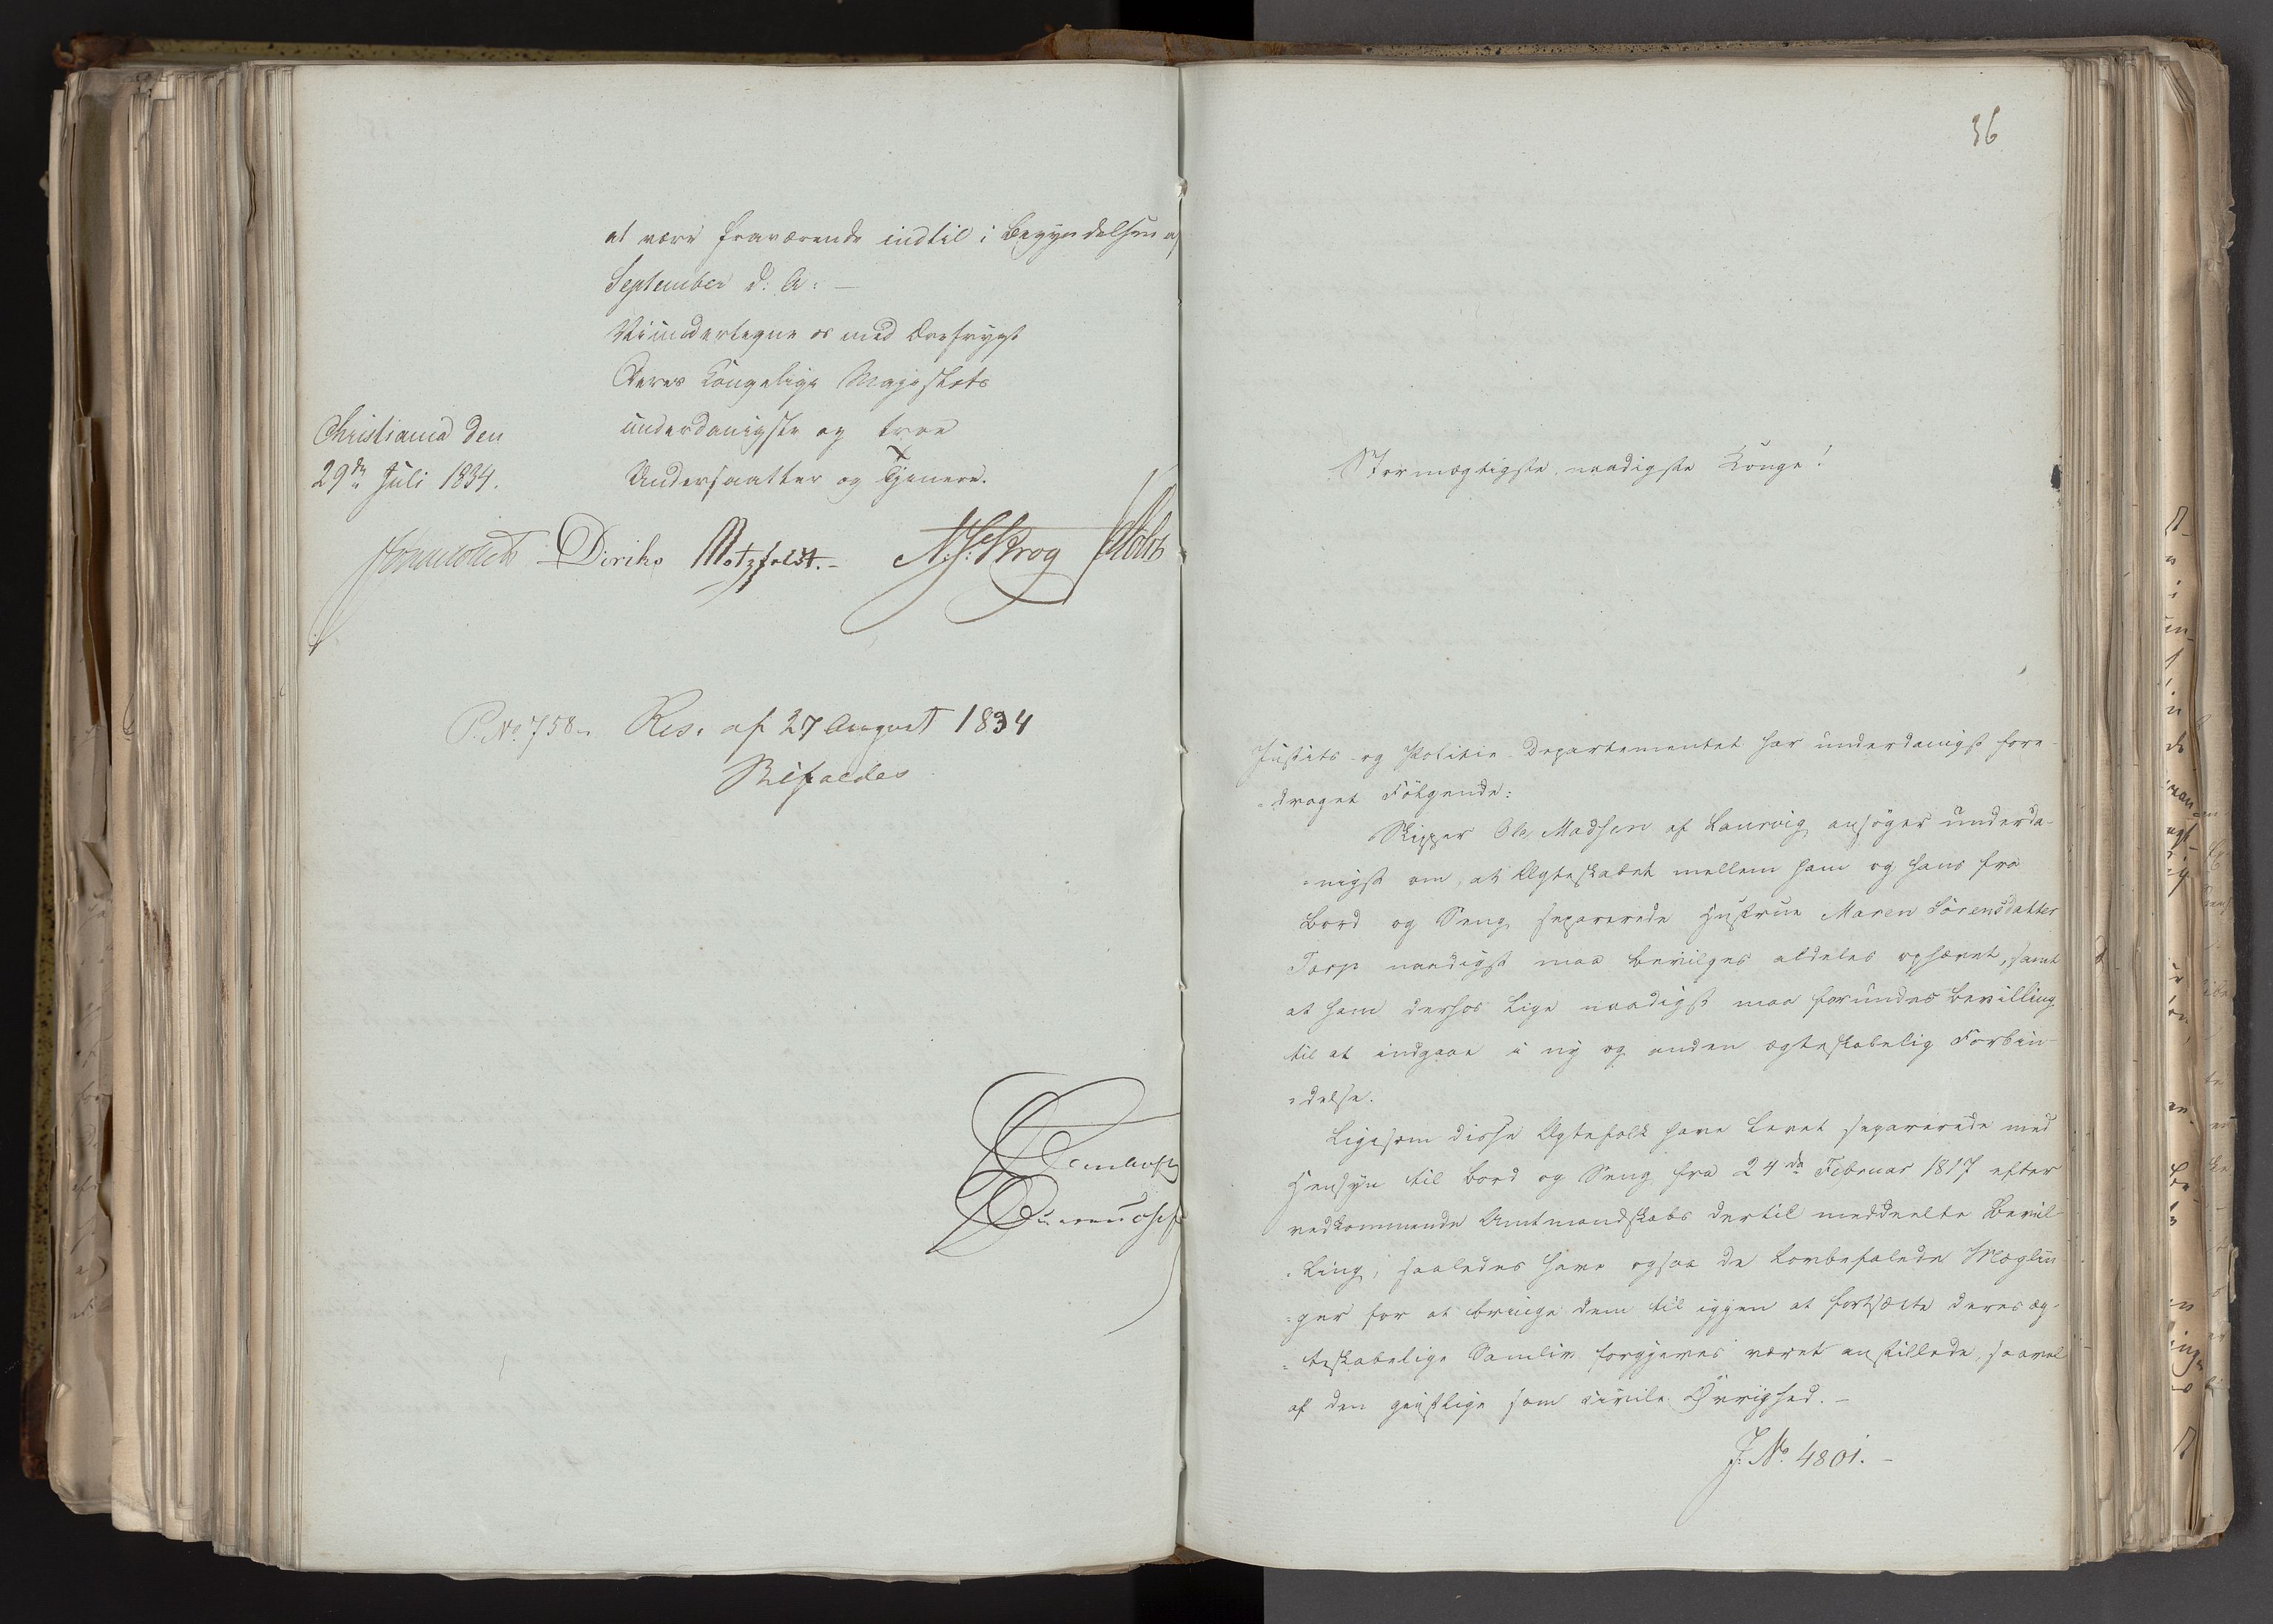 at være fraværende indtil i Begyndelsen af
September d: A: —
Vi undertegne os med Ærefrygt
Deres Kongelige Majestæts
underdanigste og troe
Undersaatter og Tjenere.
Christiania den
29de Juli 1834.
Diriks Motzfeldt.- N. J. Krog
P. No 758. Res. af 27 August 1834
Bifaldes
36
Stormægtigste, naadigste Konge!
Justits- og Politie-Departementet har underdanigst fore-
=draget Følgende:
Skipper Ole Madsen af Laurvig ansøger underda-
=nigst om, at Ægteskabet mellem ham og hans fra
Bord og Seng separerede Hustrue Maren Sörensdatter
Torp naadigst maa bevilges aldeles ophævet, samt
at ham derhos lige naadigst maa forundes Bevilling
til at indgaae i ny og anden ægteskabelig Forbin-
=delse.
Ligesom disse Ægtefolk have levet separerede med
Hensyn til Bord og Seng fra 24de Februar 1817 efter
vedkommende Amtmandskabs dertil meddeelte Bevil-
=ling, saaledes have ogsaa de lovbefalede Mæglin-
=ger for at bringe dem til igjen at fortsætte deres æg-
=teskabelige Samliv forgjeves været anstillede, saavel
af den geistlige som civile Øvrighed. -
J. No 4801. -